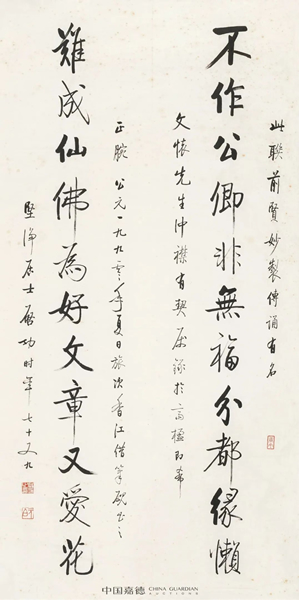 此聯前賢妙製傳誦有名
不作公卿非無福分都緣懶
文懷先生沖襟有契屬錄於高楹即希
正腕 公元一九九零年夏日旅次香江借筆硯書之
難成仙佛為好文章又愛花
堅淨居士啟功時年七十又九
中国嘉德 CHINA GUARDIAN
AUCTIONS